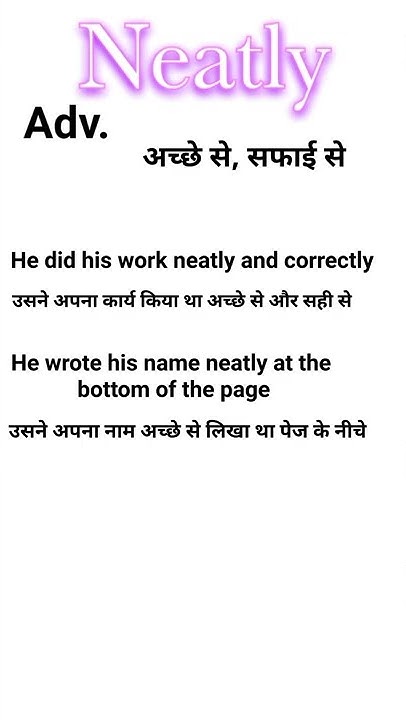 Neatly
Adv.
अच्छे से, सफाई से
He did his work neatly and correctly
उसने अपना कार्य किया था अच्छे से और सही से
He wrote his name neatly at the
bottom of the page
उसने अपना नाम अच्छे से लिखा था पेज के नीचे